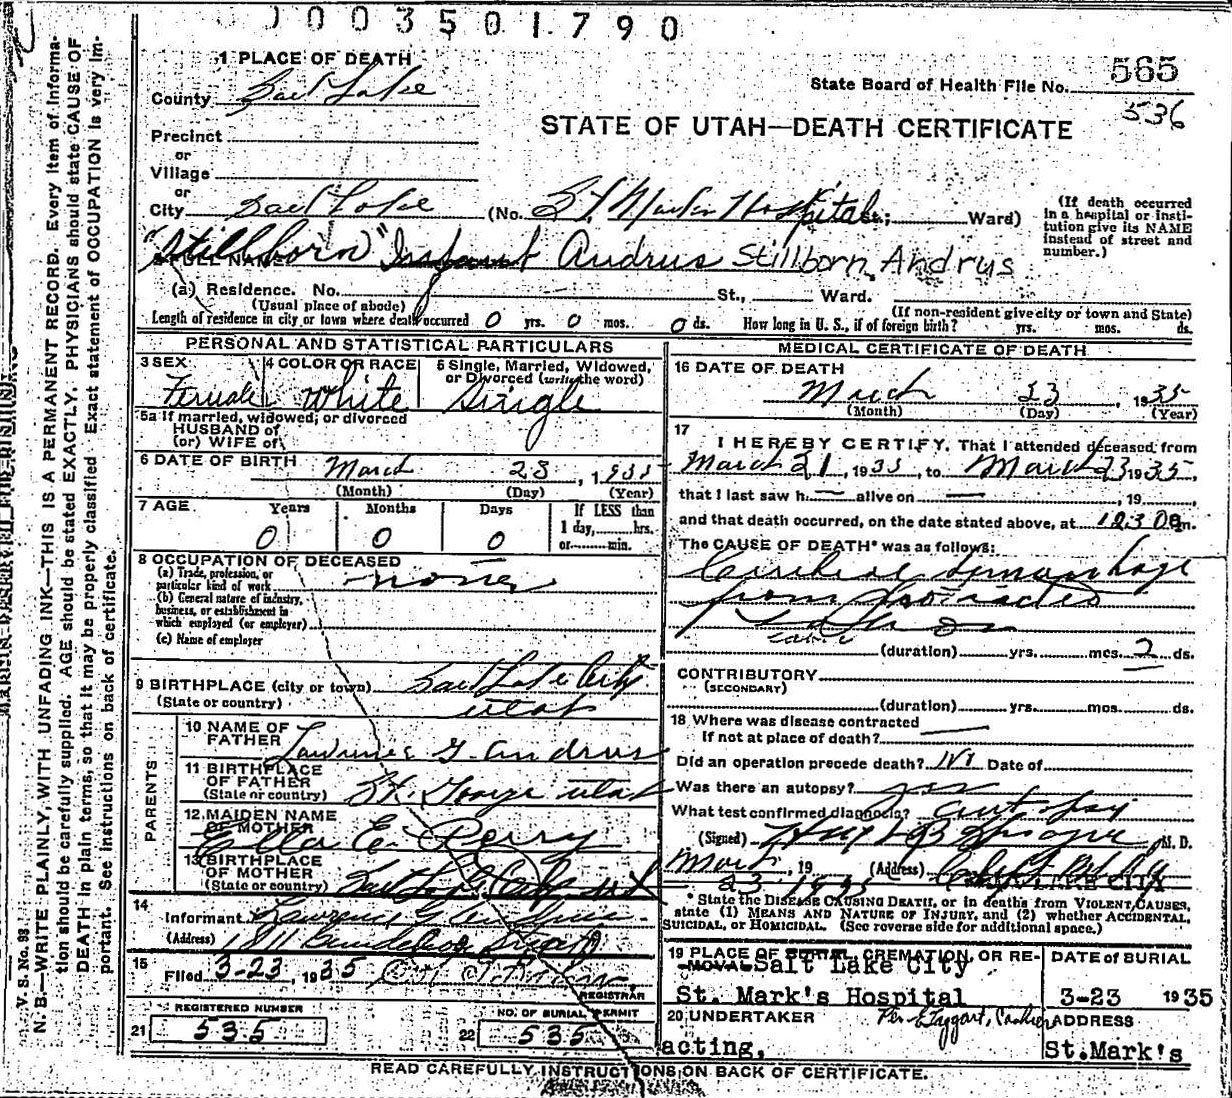 0003501790
1 PLACE OF DEATH
County Salt Lake
State Board of Health File No. 565
536
STATE OF UTAH—DEATH CERTIFICATE
Precinct
or
Village
or
City Salt Lake (No. St Marks Hospital St.; Ward)
(If death occurred in a hospital or institution give its NAME instead of street and number.)
"Stillborn" Infant Andrus Stillborn Andrus
2 FULL NAME
(a) Residence. No. St., Ward.
(Usual place of abode) (If non-resident give city or town and State)
Length of residence in city or town where death occurred 0 yrs. 0 mos. 0 ds. How long in U. S., if of foreign birth? yrs. mos. ds.
PERSONAL AND STATISTICAL PARTICULARS
3 SEX Female
4 COLOR OR RACE White
5 Single, Married, Widowed, or Divorced (write the word) Single
5a If married, widowed, or divorced
HUSBAND of
(or) WIFE of
6 DATE OF BIRTH March 23, 1935
(Month) (Day) (Year)
7 AGE Years Months Days If LESS than
1 day, hrs.
or min.
0 0 0
8 OCCUPATION OF DECEASED
(a) Trade, profession, or particular kind of work none
(b) General nature of industry, business, or establishment in which employed (or employer)
(c) Name of employer
9 BIRTHPLACE (city or town) Salt Lake City
(State or country) Utah
PARENTS
10 NAME OF FATHER Lawrence G. Andrus
11 BIRTHPLACE OF FATHER
(State or country) St. George Utah
12 MAIDEN NAME OF MOTHER
Ella E. Perry
13 BIRTHPLACE OF MOTHER
(State or country) Salt Lake City Ut
14
Informant Lawrence G Andrus
(Address) 1811
15
Filed 3-23, 1935
REGISTRAR
REGISTERED NUMBER
21 535
NO. OF BURIAL PERMIT
22 535
MEDICAL CERTIFICATE OF DEATH
16 DATE OF DEATH
March 23, 1935
(Month) (Day) (Year)
17
I HEREBY CERTIFY, That I attended deceased from
March 21, 1935, to March 23 1935,
that I last saw h — alive on —, 19
and that death occurred, on the date stated above, at 1230 m.
The CAUSE OF DEATH* was as follows:
Cerebral hemorrhage
from protracted
labor
(duration) yrs. mos. 2 ds.
CONTRIBUTORY
(SECONDARY)
(duration) yrs. mos. ds.
18 Where was disease contracted
If not at place of death?
Did an operation precede death? No Date of
Was there an autopsy? yes
What test confirmed diagnosis? autopsy
(Signed) M. D.
March 23 1935 (Address)
LAKE CITY
*State the DISEASE CAUSING DEATH, or in deaths from VIOLENT CAUSES, state (1) MEANS AND NATURE OF INJURY, and (2) whether ACCIDENTAL, SUICIDAL, or HOMICIDAL. (See reverse side for additional space.)
19 PLACE OF BURIAL, CREMATION, OR REMOVAL Salt Lake City
St. Mark's Hospital
DATE of BURIAL
3-23 1935
20 UNDERTAKER Per E Taggart, Cashier
acting,
ADDRESS
St.Mark's
READ CAREFULLY INSTRUCTIONS ON BACK OF CERTIFICATE.
V. S. No. 98.
N. B.—WRITE PLAINLY, WITH UNFADING INK—THIS IS A PERMANENT RECORD. Every item of information should be carefully supplied. AGE should be stated EXACTLY. PHYSICIANS should state CAUSE OF DEATH in plain terms, so that it may be properly classified. Exact statement of OCCUPATION is very important. See instructions on back of certificate.
MARGIN RESERVED FOR BINDING